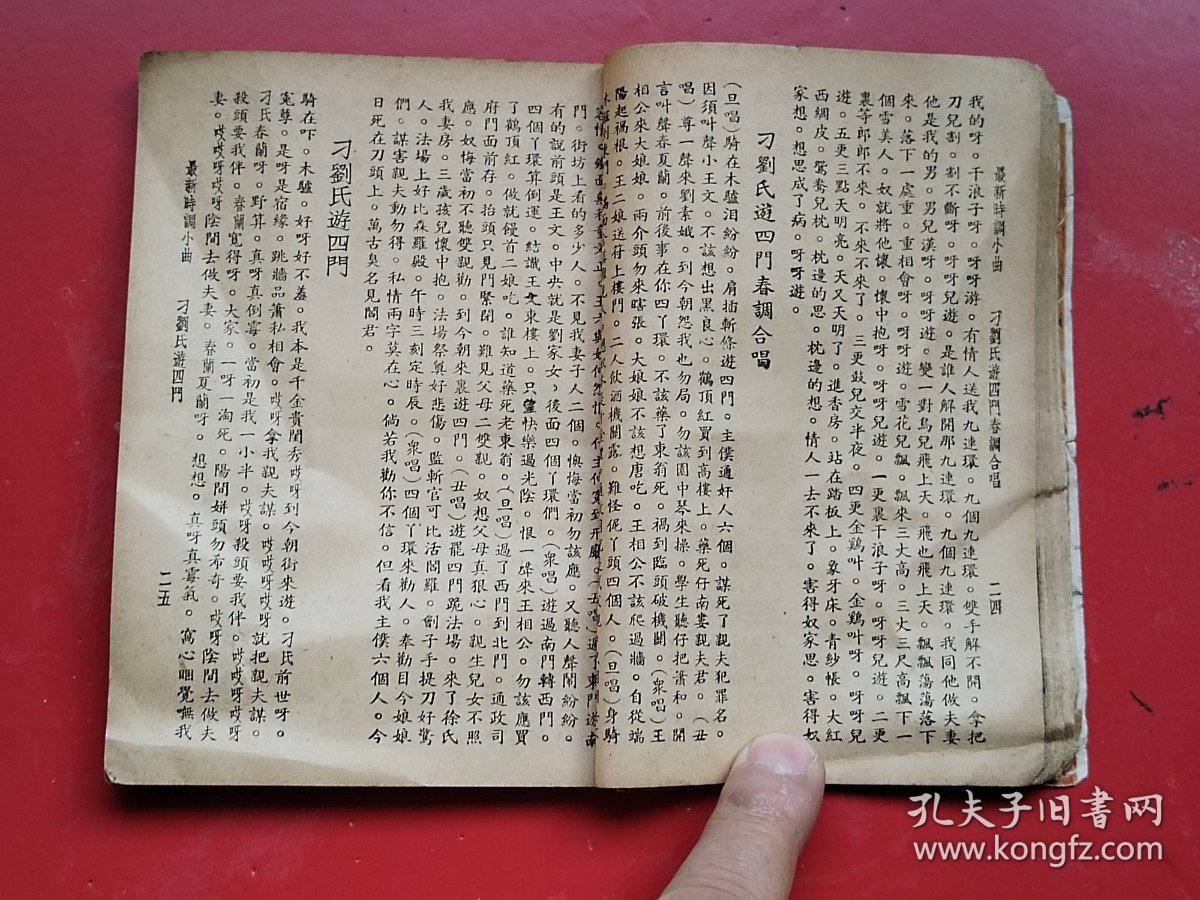 最新時調小曲　刁劉氏遊四門春調合唱　二四
我的呀。干浪子呀。呀呀游。有情人送我九連環。九個九連環。雙手解不開。拿把
刀兒割。割不斷呀。呀呀兒遊。是誰人解開那九連環。九個九連環。我同他做夫妻
他是我的男。男兒漢呀。呀呀遊。變一對鳥兒飛上天。飛也飛上天。飄飄蕩蕩落下
來。落下一處重。重相會呀。呀呀遊。雪花兒飄。飄來三丈高。三丈三尺高飄下一
個雪美人。奴就將他懷。懷中抱呀。呀呀兒遊。一更裏干浪子呀。呀呀兒遊。二更
裏等郎郎不來。不來不來了。三更鼓兒交半夜。四更金鷄叶。金鷄叶呀。呀呀兒
遊。五更三點天明亮。天又天明了。進香房。站在踏板上。象牙床。青紗帳。大紅
西綢皮。鴛鴦兒枕。枕邊的思。枕邊的想。情人一去不來了。害得奴家思。害得奴
家想。想思成了病。呀呀遊。
刁劉氏遊四門春調合唱
（旦唱）騎在木驢泪紛紛。肩插斬條遊四門。主僕通奸人六個。謀死了親夫犯罪名。
因須叶聲小王文。不該想出黑良心。鶴頂紅買到高樓上。藥死仔南婁親夫君。（丑
唱）尊一聲來劉素娥。到今朝怨我也勿局。勿該園中琴來操。學生聽仔把簫和。開
言叶聲春夏蘭。前後事在你四丫環。不該藥了東翁死。禍到臨頭破機關。（衆唱）王
相公來大娘娘。兩介頭勿來瞎張。大娘娘不該想唐吃。王相公不該爬過牆。自從端
陽起禍根。王二娘送符上樓門。二人飲酒機關露。難怪伲丫頭四個人。（旦唱）身騎
門。街坊上看的多少人。不見我妻子人二個。懊悔當初勿該應。又聽人聲鬧紛紛。
有的說前頭是王文。中央就是劉家女，後面四個丫環們。（衆唱）遊過南門轉西門。
四個丫環算倒運。結識王文東樓上。只望快樂過光陰。恨一碎來王相公。勿該應買
了鶴頂紅。做就饅首二娘吃。誰知道藥死老東翁。（旦唱）過了西門到北門。通政司
府門面前存。抬頭只見門緊閉。難見父母二雙親。奴想父母真狠心。親生兒女不照
應。奴悔當初不聽雙親勸。到今朝來裏遊四門。（丑唱）遊罷四門跪法場。來了徐氏
我妻房。三歲孩兒懷中抱。法場祭奠好悲傷。監斬官可比活閻羅。劊子手提刀好驚
人。法場上好比森羅殿。午時三刻定時辰。（衆唱）四個丫環來勸人。奉勸目今娘娘
們。謀害親夫動勿得。私情兩字莫在心。倘若我勸你不信。但看我主僕六個人。今
日死在刀頭上。萬古臭名見閻君。
刁劉氏遊四門
騎在吓。木驢。好呀好不羞。我本是千金貴閨秀哎呀到今朝街來遊。刁氏前世呀。
寃孽。是呀是宿緣。跳牆品簫私相會。哎呀拿我親夫謀。哎哎呀哎呀就把親夫謀。
刁氏春蘭呀。野算。真呀真倒霉。當初是我一小半。哎呀殺頭要我伴。哎哎呀哎呀
殺頭要我伴。春蘭寬得呀。大家。一呀一淘死。陽間姘頭勿希奇。哎呀陰間去做夫
妻。哎哎呀哎呀陰間去做夫妻。春蘭夏蘭呀。想想。真呀真霉氣。窩心睏覺嘸我
最新時調小曲　刁劉氏遊四門　二五
孔夫子旧書网
www.kongfz.com